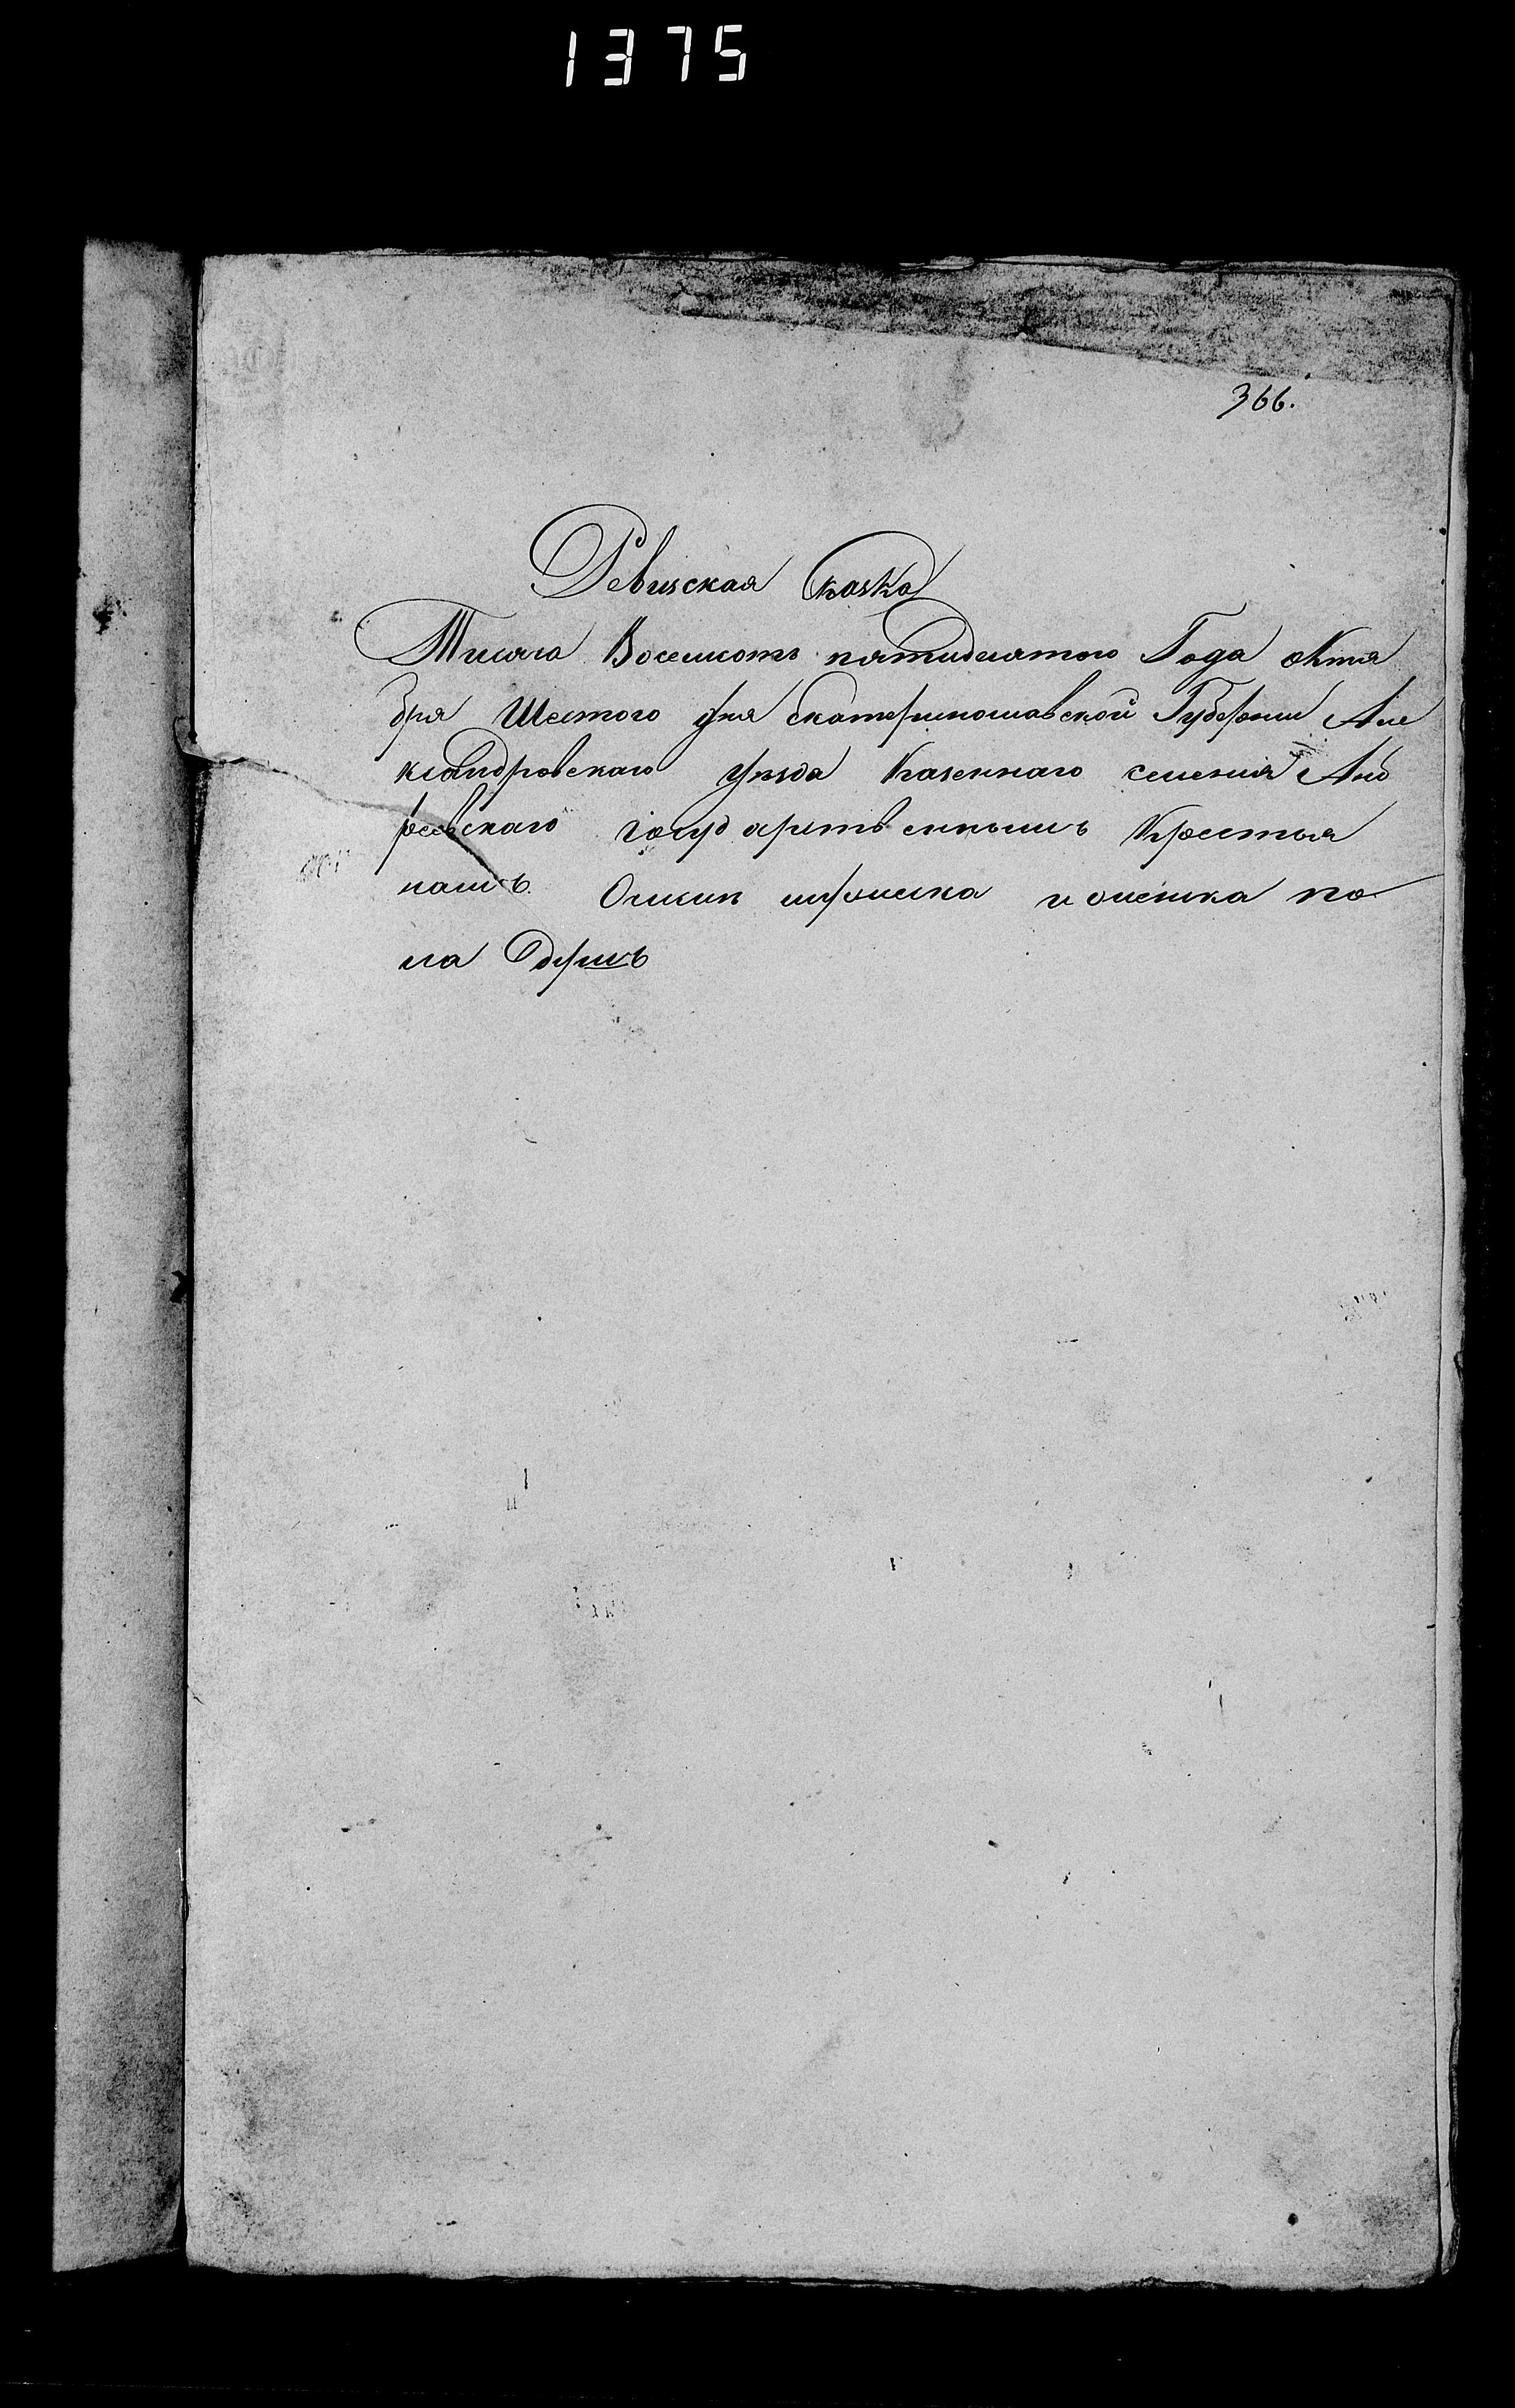 1375
366.
Ревизская Сказка
Тысяча Восемсотъ пятидесятого Года октя
бря Шестого дня Екатеринославской Губернии Але
ксандровского уезда Казеннаго селения Анд
реевскаго государственнымъ Крестья
намъ Омужеска и оженска по
ла Душъ